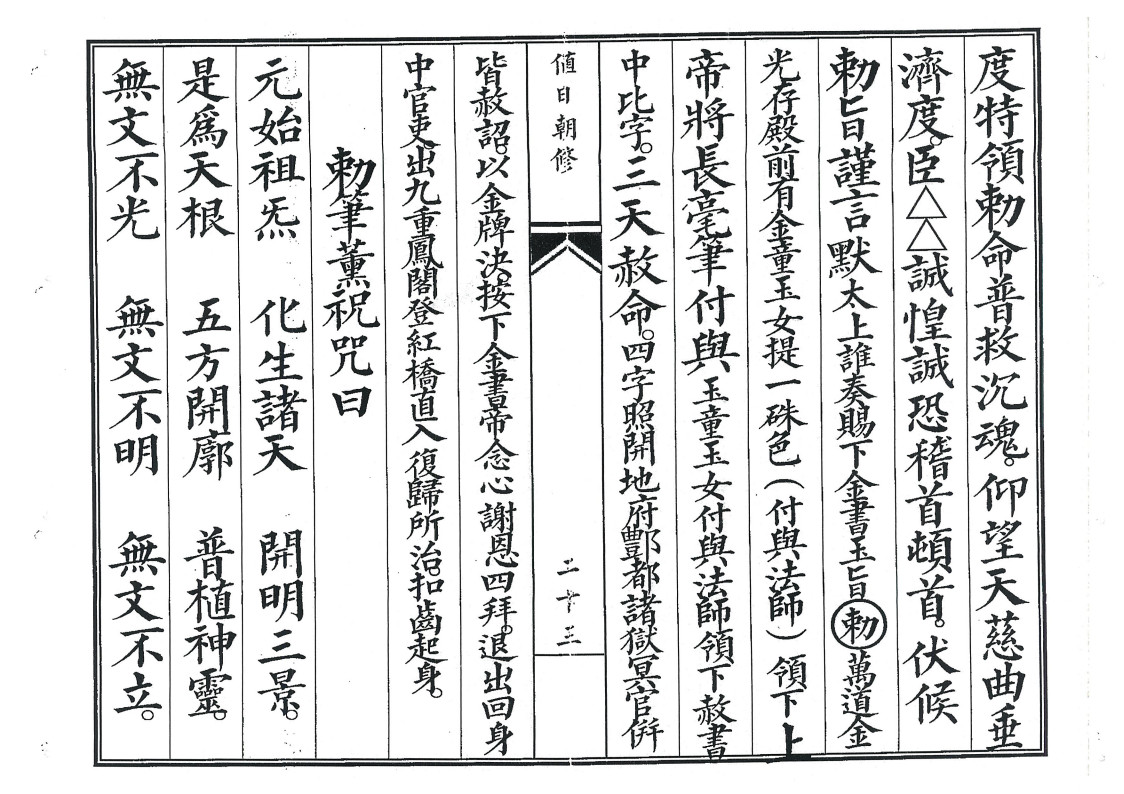 度特領勅命普救沉魂。仰望天慈曲垂
濟度。臣△△誠惶誠恐稽首頓首。伏候
勅旨謹言默太上誰奏賜下金書玉旨勅萬道金
光存殿前有金童玉女提一硃色(付與法師)領下上
帝將長毫筆付與玉童玉女付與法師領下赦書
中比字。三天赦命。四字照開地府酆都諸獄冥官併
值日朝修
二十三
皆赦詔。以金牌決。按下金書帝念心謝恩四拜。退出回身
中官吏。出九重鳳閣登紅橋直入復歸所治。扣齒起身。
勅筆薰祝咒曰
元始祖炁 化生諸天 開明三景。
是爲天根 五方開廓 普植神靈。
無文不光 無文不明 無文不立。